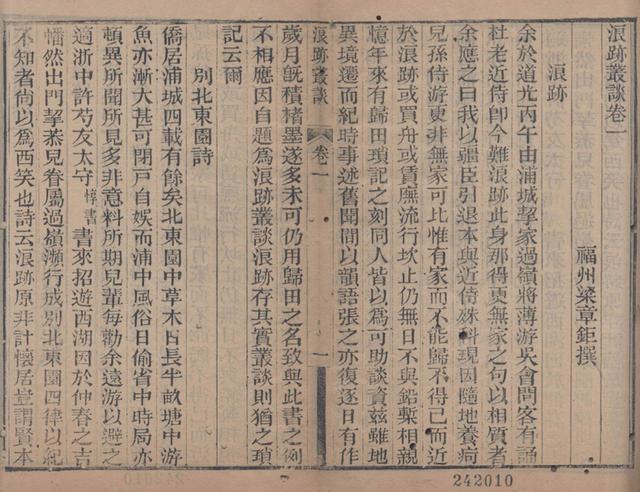 浪跡叢談卷一
福州梁章鉅撰
浪跡
余於道光丙午由浦城挈家過嶺將薄游吳會問客有誦
杜老近侍卽今難浪跡此身那得更無家之句以相質者
余應之曰我以疆臣引退本與近侍殊科現因隨地養疴
兒孫侍游更非無家可比惟有家而不能歸不得已而近
於浪跡或買舟或賃廡流行坎止仍無日不與鉛槧相親
憶年來有歸田瑣記之刻同人皆以爲可助談資茲雖地
異境遷而紀時事述舊聞間以韻語張之亦復逐日有作
歲月旣積楮墨遂多未可仍用歸田之名致與此書之例
不相應因自題爲浪跡叢談浪跡存其實叢談則猶之瑣
記云爾
別北東園詩
僑居浦城四載有餘矣北東園中草木日長半畝塘中游
魚亦漸大甚可閉戸自娛而浦中風俗日偷省中時局亦
頓異所聞所見多非意料所期兒輩每勸余遠游以避之
適浙中許芍友太守惇書書來招遊西湖因於仲春之吉
幡然出門挈忝兒眷屬過嶺瀕行成別北東園四律以紀
不知者尙以爲西笑也詩云浪跡原非計懷居豈謂賢本
浪跡叢談
卷一
一
242010